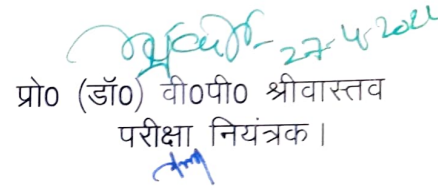 27-4-2022
प्रो० (डॉ०) वी०पी० श्रीवास्तव
परीक्षा नियंत्रक।